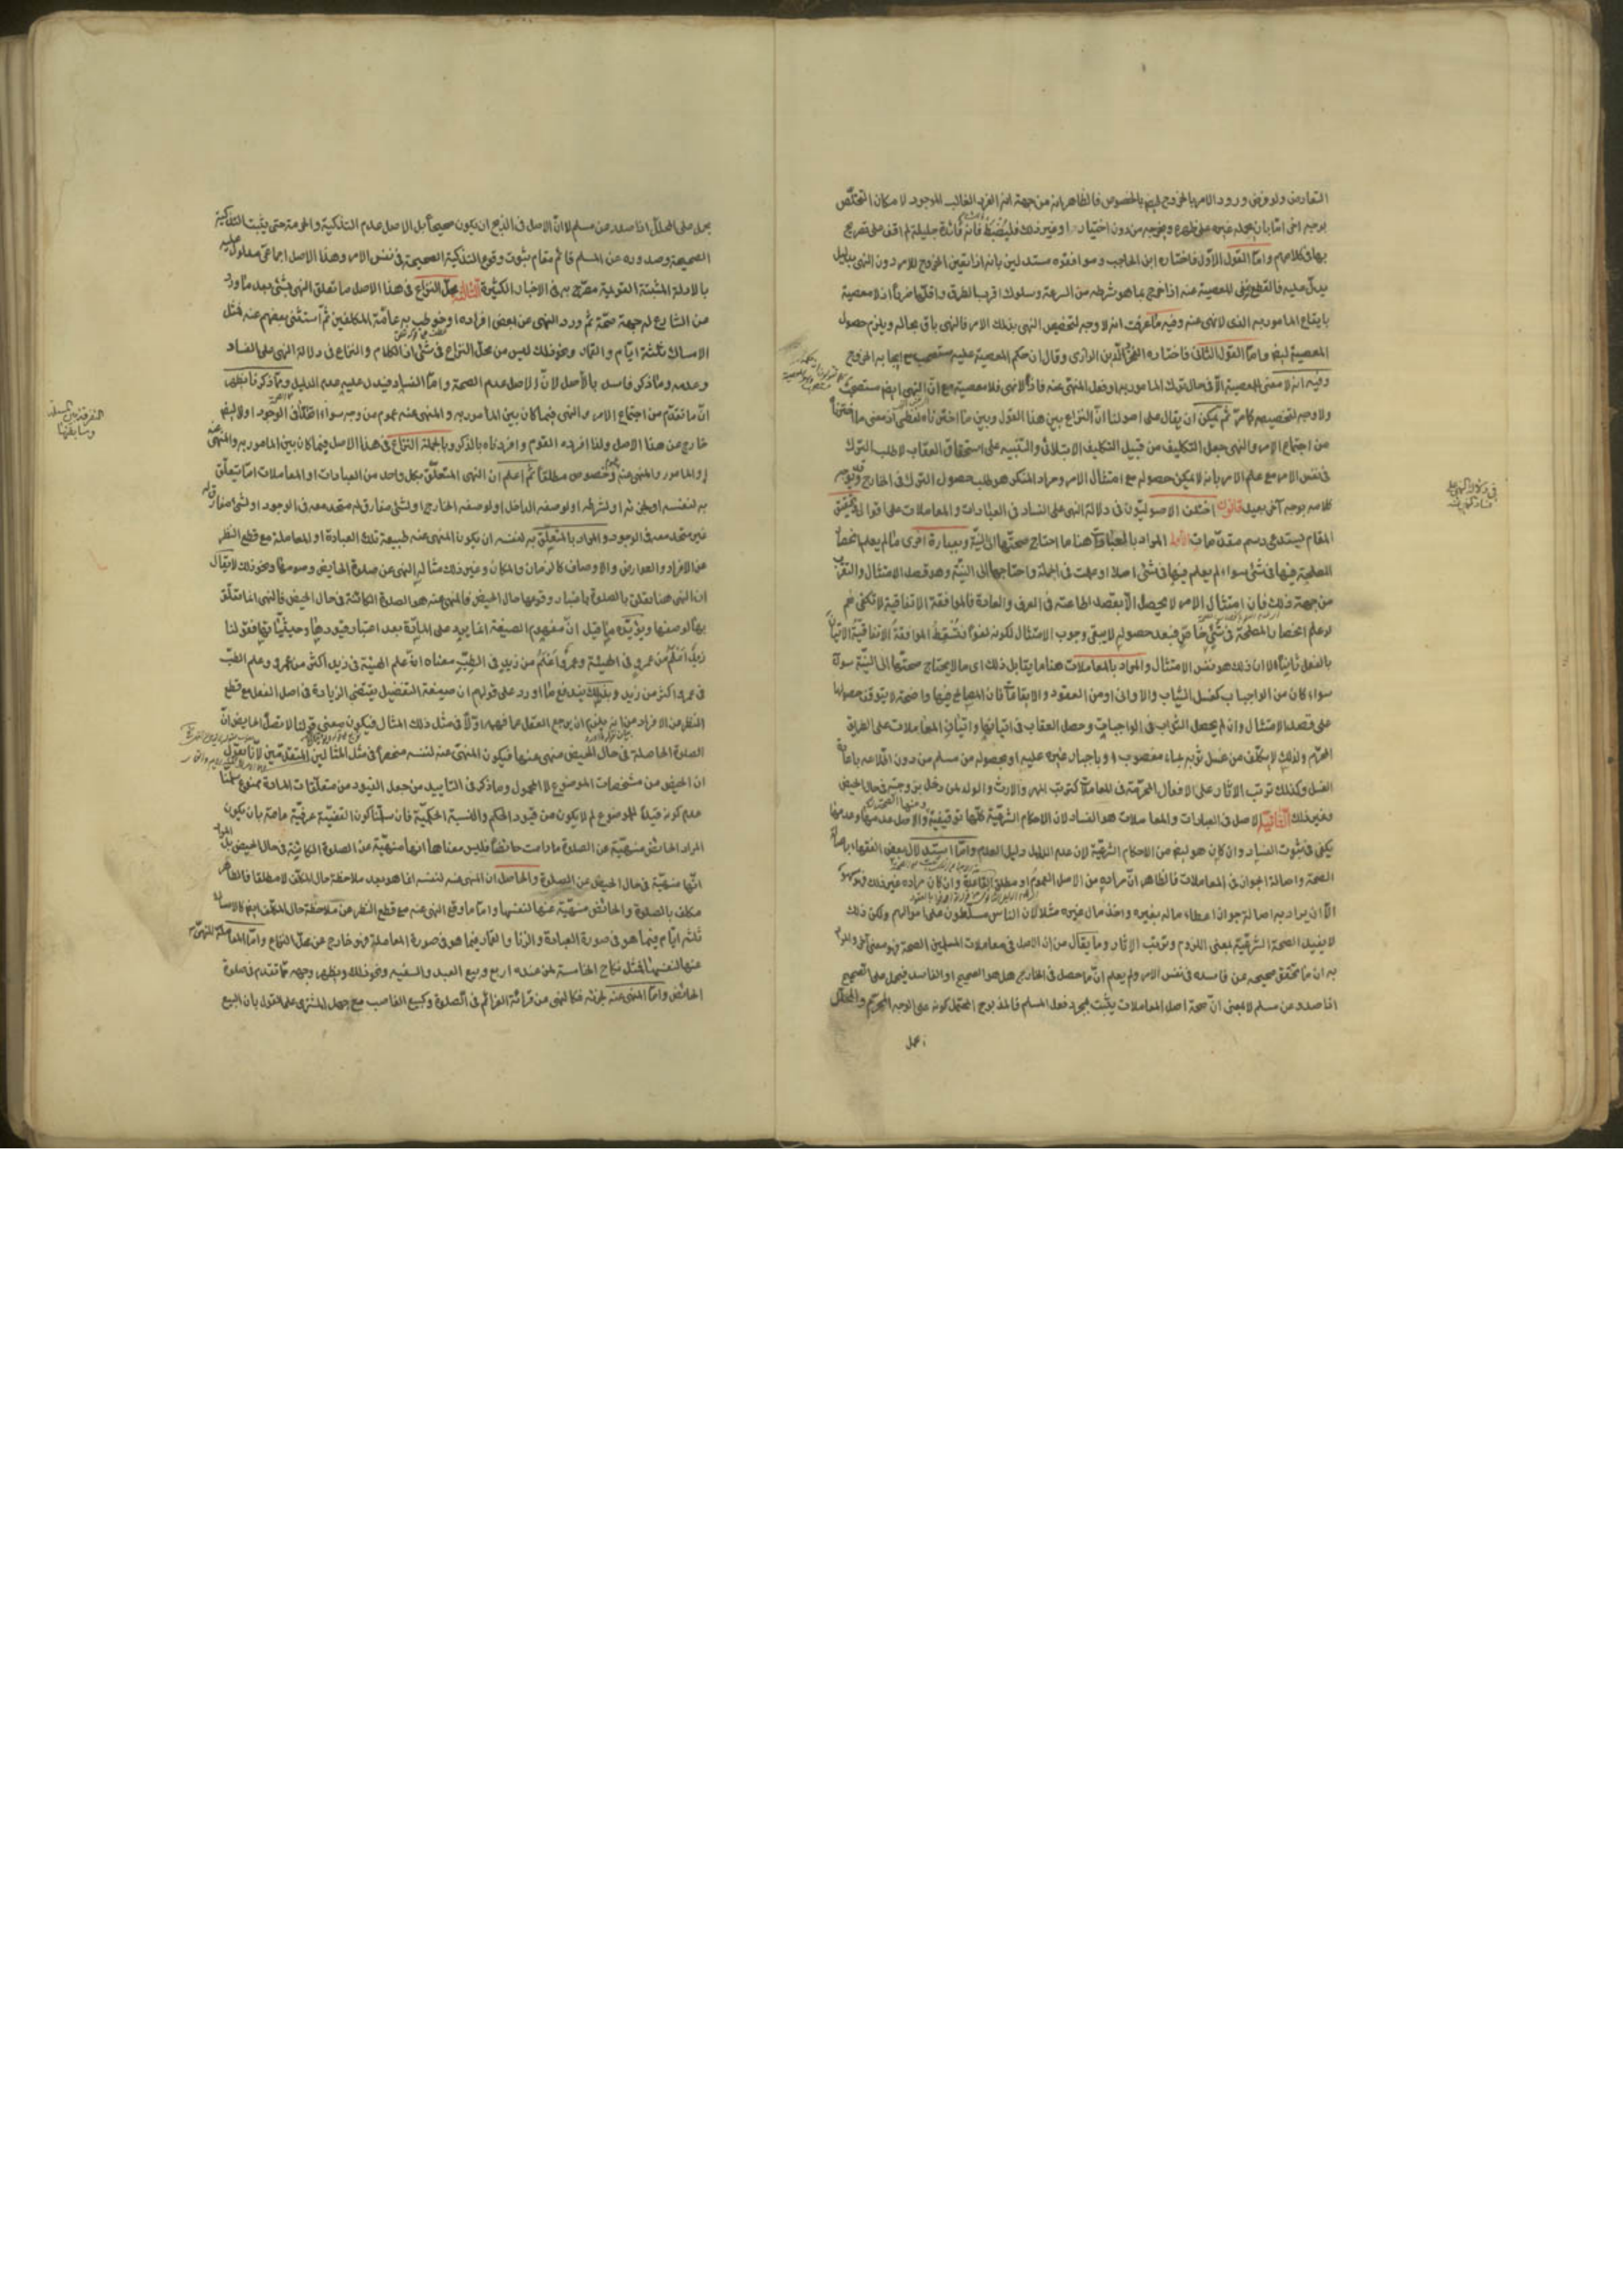 التعارض ولو فرض ورود الامر بالخروج ايضا بالخصوص فالظاهر انه من جهة انه الفرد الغالب الموجود لا مكان التخلص
بوجه اخر اما بان يحمله غيره على ظهره ويخرجه من دون اختياره او غير ذلك فليضبط فانه فائدة جليلة لم اقف على تصريح
بها في كلامهم واما القول الاول فاختاره ابن الحاجب وموافقوه مستدلين بانه اذا تعين الخروج للامر دون النهي بدليل
يدل عليه فالقطع بنفي المعصية عنه اذا خرج بما هو شرطه من السرعة وسلوك اقرب الطرق واقلها ضررا اذ لا معصية
بايقاع المامور به الذي لا نهي عنه وفيه ما عرفت انه لا وجه لتخصيص النهي بذلك الامر فالنهي باق بحاله ويلزم حصول
المعصية ايضا واما القول الثاني فاختاره الفخر الدين الرازي وقال ان حكم المعصية عليه مستصحب مع ايجابه الخروج
وفيه انه لا معنى للمعصية الا في حال ترك المامور به او فعل المنهي عنه فاذا لا نهي فلا معصية مع ان النهي ايضا مستصحب
ولا وجه لتخصيصه كما مر ثم يمكن ان يقال على اصولنا ان النزاع بين هذا القول وبين ما اخترناه لفظي اذ معنى ما اخترنا
من اجتماع الامر والنهي جعل التكليف من قبيل التكليف الابتلائي والتنبيه على استحقاق العقاب لا طلب الترك
في نفس الامر مع علم الامر بانه لا يمكن حصوله مع امتثال الامر ومراد المنكر هو طلب حصول الترك في الخارج وتوجيه
كلامه بوجه آخر بعيد قانون اختلف الاصوليون في دلالة النهي على الفساد في العبادات والمعاملات على اقوال وتحقيق
المقام يستدعي رسم مقدمات الاولى المراد بالعبادات هنا ما احتاج صحتها الى النية وبعبارة اخرى ما لم يعلم انحصار
المصلحة فيها في شئ سواء لم يعلم فيها في شئ اصلا او علمت في الجملة واحتاجها الى النية وهو قصد الامتثال والتقرب
من جهة ذلك فان امتثال الامر لا يحصل الا بقصد اطاعته في العرف والعادة فالموافقة الاتفاقية لا تكفي نعم
لو علم انحصار المصلحة في شئ خاص فبعد حصوله لا يبقى وجوب الامتثال لكونه لغوا فتسقط الموافقة الاتفاقية الاتيان
بالفعل ثانيا الا ان ذلك هو نفس الامتثال والمراد بالمعاملات هنا ما يقابل ذلك اي ما لا يحتاج صحتها الى النية سواء
سواء كان من الواجبات كغسل الثياب والاواني او من العقود والايقاعات فان المصالح فيها واضحة لا يتوقف حصولها
على قصد الامتثال وان لم يحصل الثواب في الواجبات وحصل العقاب في اتيانها واتيان المعاملات على الطريق
المحرم ولذلك لا يكلف من غسل ثوبه بماء مغصوب او باجبار غيره عليه او بحصوله من مسلم من دون اطلاعه باعادة
الغسل وكذلك ترتب الاثار على الافعال المحرمة في المعاملات كترتب المهر والارث والولد لمن دخل بزوجته في حال الحيض
وغير ذلك الثانية الاصل في العبادات والمعاملات هو الفساد لان الاحكام الشرعية كلها توقيفية ومنها الصحة والاصل عدمها وعدمها
يكفي في ثبوت الفساد وان كان هو ايضا من الاحكام الشرعية لان عدم الدليل دليل العدم واما استدلال بعض الفقهاء باصالة
الصحة واصالة الجواز في المعاملات فالظاهر ان مراده من الاصل العموم او مطلق القاعدة وان كان مراده غير ذلك فهو سهو
الا ان يراد به اصالة جواز اعطاء ماله بغيره واخذ مال غيره مثلا لان الناس مسلطون على اموالهم ولكن ذلك
لا يفيد الصحة الشرعية بمعنى اللزوم وترتب الاثار وما يقال من ان الاصل في معاملات المسلمين الصحة فهو معنى آخر والمراد
به ان ما تحقق صحيحه عن فاسده في نفس الامر ولم يعلم ان ما حصل في الخارج هل هو الصحيح او الفاسد فيحمل على الصحيح
اذا صدر من مسلم لا بمعنى ان صحة اصل المعاملات يثبت بمجرد فعل المسلم فالمذبوح المحتمل كونه على الوجه المحرم والمحلل
يحمل
يحمل على المحلل اذا صدر من مسلم لا ان الاصل في الذبح ان يكون صحيحا بل الاصل عدم التذكية والحرمة حتى يثبت التذكية
الصحيحة وصدوره عن المسلم قائم مقام ثبوت وقوع التذكية الصحيحة في نفس الامر وهذا الاصل اجماعي مدلول عليه
بالادلة المثبتة القوية مصرح به في الاخبار الكثيرة الثالثة محل النزاع في هذا الاصل ما تعلق النهي بشئ بعد ما ورد
من الشارع له جهة صحة ثم ورد النهي عن بعض افراده او خوطب به عامة المكلفين ثم استثنى بعضهم عنه فمثل
الامساك ثلثة ايام والقمار ونحو ذلك ليس من محل النزاع في شئ اذ الكلام والنزاع في دلالة النهي على الفساد
وعدمه وما ذكر فاسد بالاصل لان الاصل عدم الصحة واما الفساد فيدل عليه عدم الدليل ومما ذكرنا يظهر
ان ما تقدم من اجتماع الامر والنهي فيما كان بين المامور به والمنهي عنه عموم من وجه سواء اتفقا في الوجود او لا ايضا
خارج عن هذا الاصل ولذا افرده القوم وافردناه بالذكر وبالجملة النزاع في هذا الاصل فيما كان بين المامور به والمنهي عنه
او المامور والمنهي عنه عموم وخصوص مطلقا ثم اعلم ان النهي المتعلق بكل واحد من العبادات او المعاملات اما يتعلق
به لنفسه او لجزئه او لشرطه او لوصفه الداخل او لوصفه الخارج او لشئ مفارق له متحد معه في الوجود او لشئ مفارق له
غير متحد معه في الوجود والمراد بالمتعلق به لنفسه ان يكون المنهي عنه طبيعة تلك العبادة او المعاملة مع قطع النظر
عن الافراد والعوارض والاوصاف كالزمان والمكان وغير ذلك مثاله النهي عن صلوة الحايض وصومها ونحو ذلك لا يقال
ان النهي هنا تعلق بالصلوة باعتبار وقوعها حال الحيض فالمنهي عنه هو الصلوة الكائنة في حال الحيض فالنهي انما تعلق
بها لوصفها ويؤيده ما قيل ان مفهوم الصيغة انما يرد على المادة بعد اعتبار قيودها وحيثياتها فقولنا
زيد اعلم من عمرو في الهيئة وعمرو اعلم من زيد في الطب معناه ان علم الهيئة في زيد اكثر من عمرو وعلم الطب
في عمرو اكثر من زيد وبذلك يندفع ما اورد على قولهم ان صيغة التفضيل يقتضي الزيادة في اصل الفعل مع قطع
النظر عن الافراد من انه يلزم ان يرجع العقل عما فهمه اولا في مثل ذلك المثال فيكون معنى قولنا لا تصل الحايض ان
الصلوة الحاصلة في حال الحيض منهي عنها فيكون المنهي عنه لنفسه منحصرا في مثل المثالين المتقدمين لانا نقول
ان الحيض من مشخصات الموضوع لا المحمول وما ذكر في التاييد من جعل القيود من متعلقات المادة ممنوع سلمنا
عدم كونه قيدا للموضوع لم لا يكون من قيود الحكم والنسبة الحكمية فان سلمنا كون القضية عرفية عامة بان يكون
المراد الحائض منهية عن الصلوة ما دامت حائضا فليس معناها انها منهية عن الصلوة الكائنة في حال الحيض بل المراد
انها منهية في حال الحيض عن الصلوة والحاصل ان المنهي عنه لنفسه انما هو بعد ملاحظة حال المكلف لا مطلقا فالطاهر
مكلف بالصلوة والحائض منهية عنها لنفسها واما ما وقع النهي عنه مع قطع النظر عن ملاحظة حال المكلف ايضا كالامساك
ثلثة ايام فيما هو في صورة العبادة والزنا والقمار فيما هو في صورة المعاملة فهو خارج عن محل النزاع واما المعاملة المنهي
عنها لنفسها فمثل نكاح الخامسة لمن عنده اربع وبيع العبد والسفيه ونحو ذلك ويظهر وجهه مما تقدم في صلوة
الحائض واما المنهي عنه لجزئه فكالنهي عن قرائة العزائم في الصلوة وكبيع الغاصب مع جهل المشتري على القول بان البيع
الفرق بين المسئلة
وسابقتها